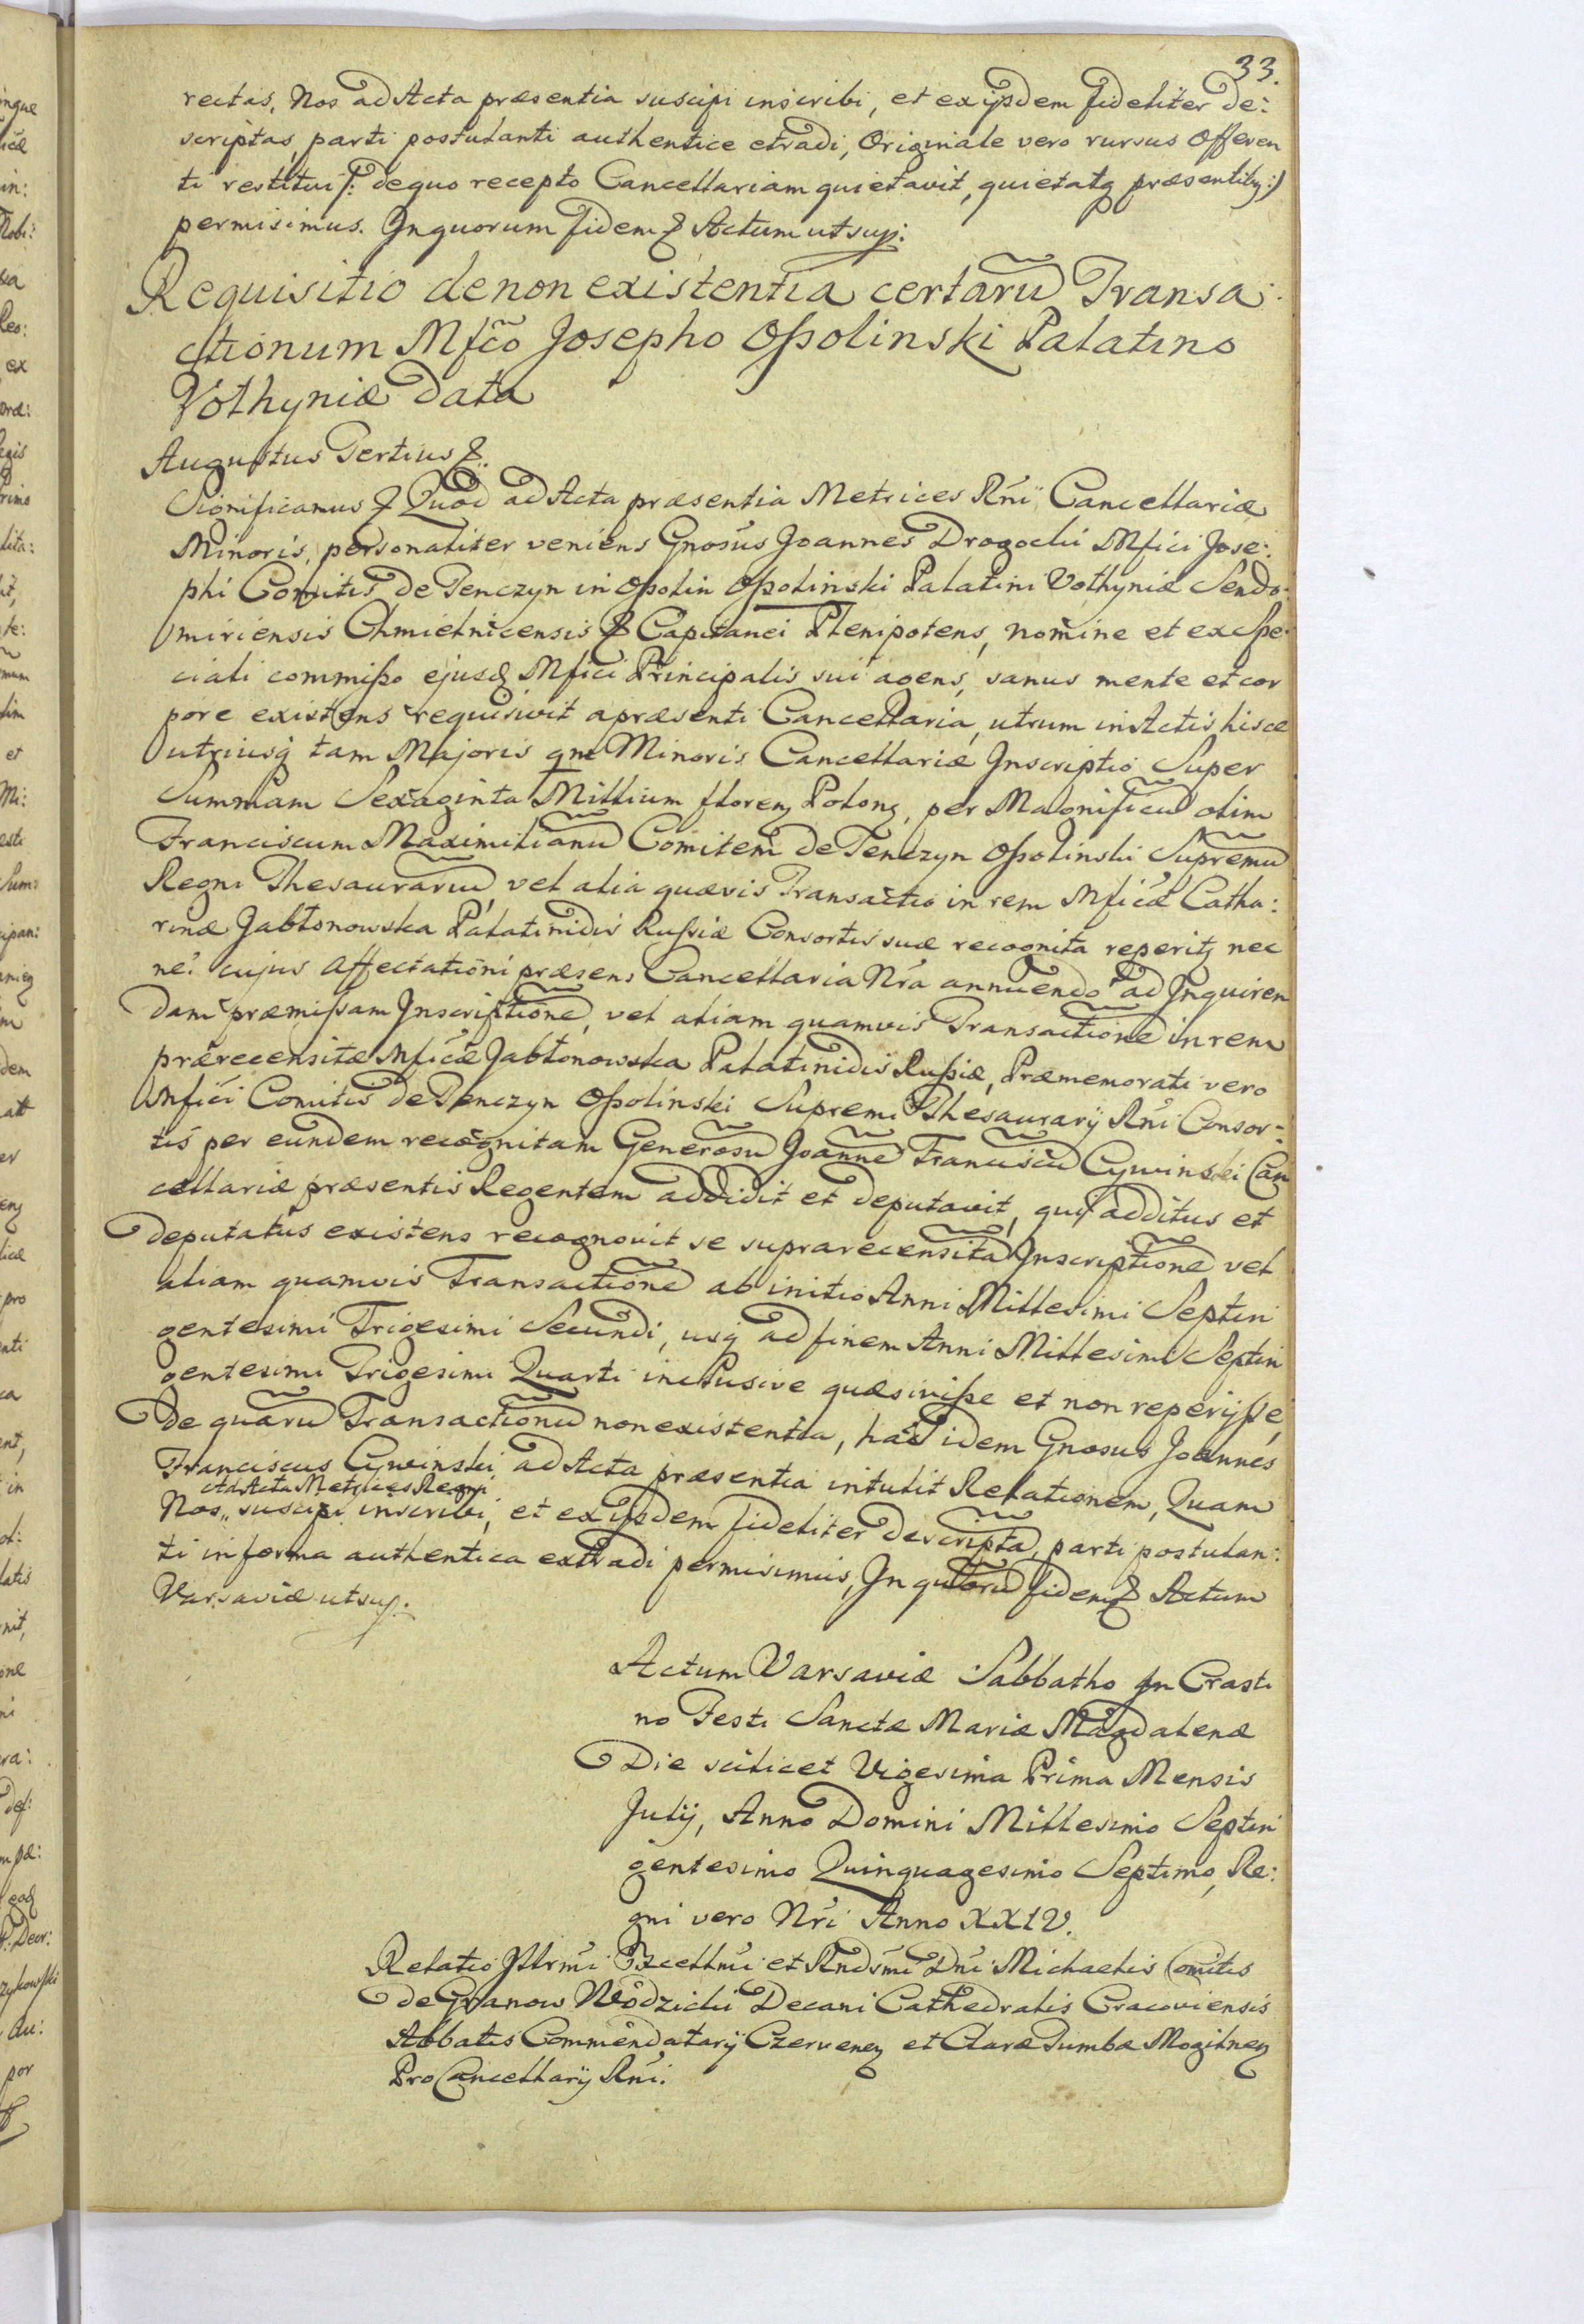 33.
rectas, Nos ad Acta præsentia suscipi inscribi, et ex ijsdem fideliter de:
scriptas, parti postulanti authentice etradi, Originale vero rursus Offeren
ti restitui /: de quo recepto Cancellariam quietavit, quietatq præsentibq :/
permisimus. In quorum fidem & Actum ut sup:
Requisitio de non existentia certarũ Transa:
ctionum Mfco Josepho Oßolinski Palatino
Volhyniæ data
Augustus Tertius &.
Significamus & Quod ad Acta præsentia Metrices Rni Cancellariæ
Minoris, personaliter veniens Gnosus Joannes Drogocki Mfici Jose:
phi Comitis de Tenczyn in Oßolin Oßolinski Palatini Volhyniæ Sendo:
miriensis Chmielnicensis & Capitanei Plenipotens, nomine et ex Spe:
ciali commißo ejusq Mfici Principalis sui agens, sanus mente et cor
pore existens requisivit a præsenti Cancellaria, utrum in Actis hisce
utriusq tam Majoris qm Minoris Cancellariæ Inscriptio Super
Summam Sexaginta Millium floreng Polong, per Magnificũ olim
Franciscum Maximilianũ Comitem de Tenczyn Oßolinski Supremũ
Regni Thesaurariũ, vel alia quævis Transactio in rem Mficæ Catha:
rinæ Jabłonowska Palatinidis Rußiæ Consortis suæ recognita reperitq nec
ne: cujus Affectationi præsens Cancellaria Nra annuendo ad Inquiren
dam præmißam Inscriptionẽ, vel aliam quamvis Transactionẽ in rem
prærecensitæ Mficæ Jabłonowska Palatinidis Rußiæ, Præmemorati vero
Mfici Comitis de Tenczyn Oßolinski Supremi Thesaurarij Rni Consor:
tis per eundem recognitam Generosũ Joannẽ Franciscũ Cywinski Can
cellariæ præsentis Regentem addidit et deputavit, qui additus et
deputatus existens recognovit se suprarecensitã Inscriptionẽ vel
aliam quamvis Transactionẽ ab initio Anni Millesimi Septin
gentesimi Trigesimi Secundi, usq ad finem Anni Millesimi Septin
gentesimi Trigesimi Quarti inclusive quæsiviße et non reperijße,
De quarũ Transactionũ non existentia, hac idem Gnosus Joannes
Franciscus Cywinski, ad Acta præsentia intulit Relationem, Quam
ad Acta Metrices Regni
Nos,, suscipi inscribi, et ex ijsdem fideliter descriptã, parti postulan:
ti in forma authentica extradi permisimus, In quorũ fidem & Actum
Varsaviæ ut sup:
Actum Varsaviæ Sabbatho In Crasti
no Festi Sanctæ Mariæ Magdalenæ
Die scilicet Vigesima Prima Mensis
Julij, Anno Domini Millesimo Septin
gentesimo Quinquagesimo Septimo, Re:
gni vero Nri Anno XXIV.
Relatio Illrmi Excellmi et Rndsmi Dni Michaelis Comitis
de Granow Wodzicki Decani Cathedralis Cracoviensis
Abbatis Commendatarij Czerveneg et Claræ Tumbæ Mogilneg
Pro Cancellarij Rni.